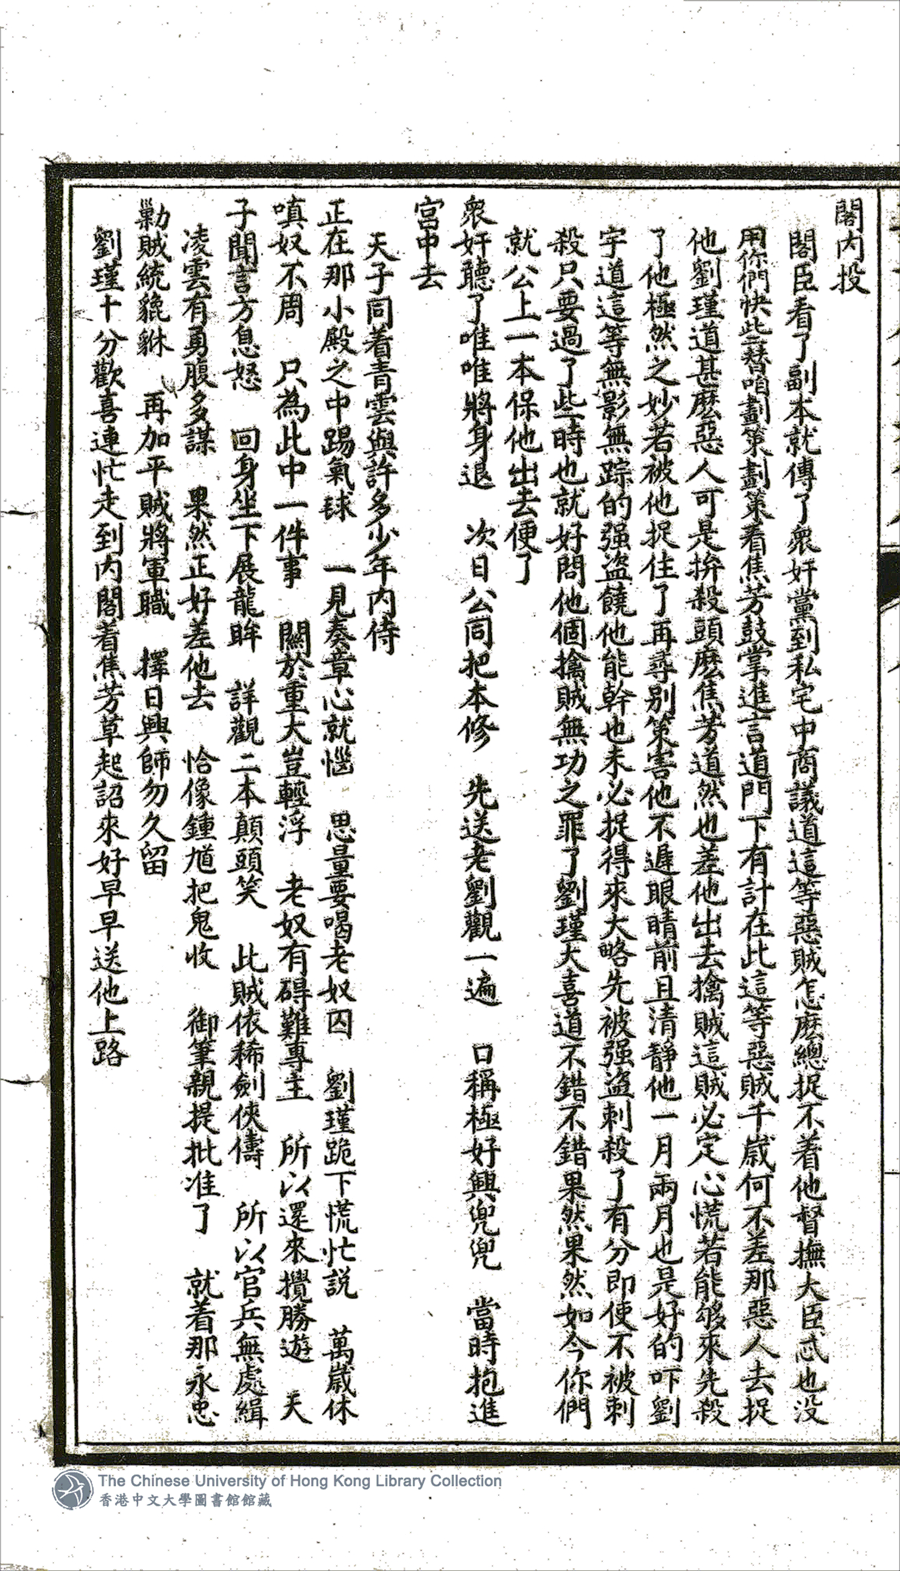 閣內投
閣臣看了副本就傳了衆奸黨到私宅中商議道這等惡賊怎麽總捉不着他督撫大臣忒也没
用你們快些替咱劃策劃策看焦芳鼓掌進言道門下有計在此這等惡賊千歲何不差那惡人去捉
他劉瑾道甚麽惡人可是拚殺頭麽焦芳道然也差他出去擒賊這賊必定心慌若能够來先殺
了他極然之妙若被他捉住了再尋别策害他不遲眼睛前且清靜他一月兩月也是好的吓劉
宇道這等無影無踪的强盜饒他能幹也未必捉得來大略先被强盜刺殺了有分即使不被刺
殺只要過了些時也就好問他個擒賊無功之罪了劉瑾大喜道不錯不錯果然果然如今你們
就公上一本保他出去便了
衆奸聽了唯唯將身退　次日公同把本修　先送老劉觀一遍　口稱極好興兜兜　當時抱進
宮中去
天子同着青雲與許多少年内侍
正在那小殿之中踢氣球　一見奏章心就惱　思量要喝老奴囚　劉瑾跪下慌忙説　萬歲休
嗔奴不周　只為此中一件事　關於重大豈輕浮　老奴有碍難專主　所以還來攪勝遊　天
子聞言方息怒　回身坐下展龍眸　詳觀二本顛頭笑　此賊依稀劍俠儔　所以官兵無處緝
凌雲有勇腹多謀　果然正好差他去　恰像鍾馗把鬼收　御筆親提批准了　就着那永忠
勦賊統貔貅　再加平賊將軍職　擇日興師勿久留
劉瑾十分歡喜連忙走到内閣着焦芳草起詔來好早早送他上路
The Chinese University of Hong Kong Library Collection
香港中文大學圖書館館藏